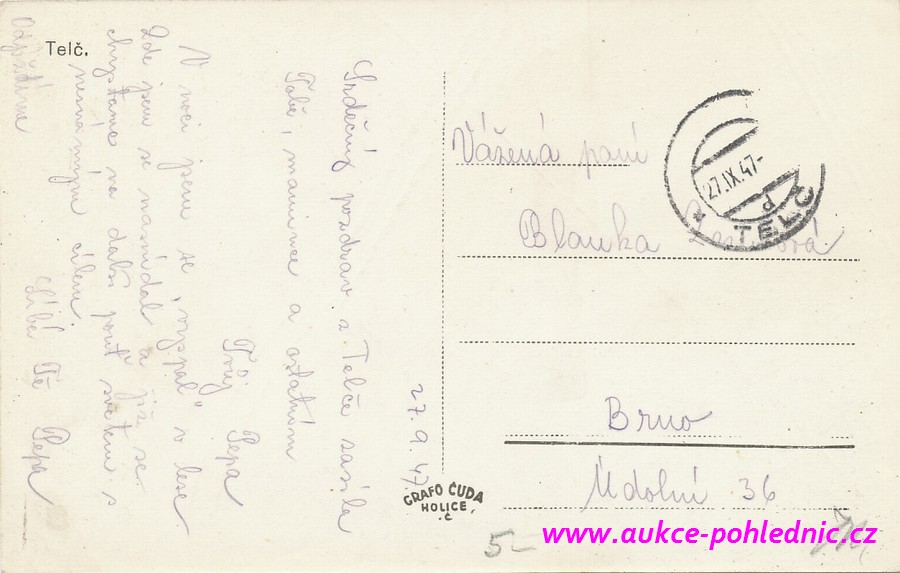 Telč.
27. 9. 47.
Srdečný pozdrav z Telče zasílá
Tobě, mamince a ostatním
Tvůj Pepa
V noci jsem se „vyspal" v lese
Zde jsem se nasnídal a již se
chystáme na další pouť světem s
neznámým cílem.
Líbá Tě Pepa
Odjíždíme
Vážená paní
Blanka
Brno
Údolní 36
27.IX.47-
d
TELČ
GRAFO ČUDA
HOLICE,
Č
5-
www.aukce-pohlednic.cz